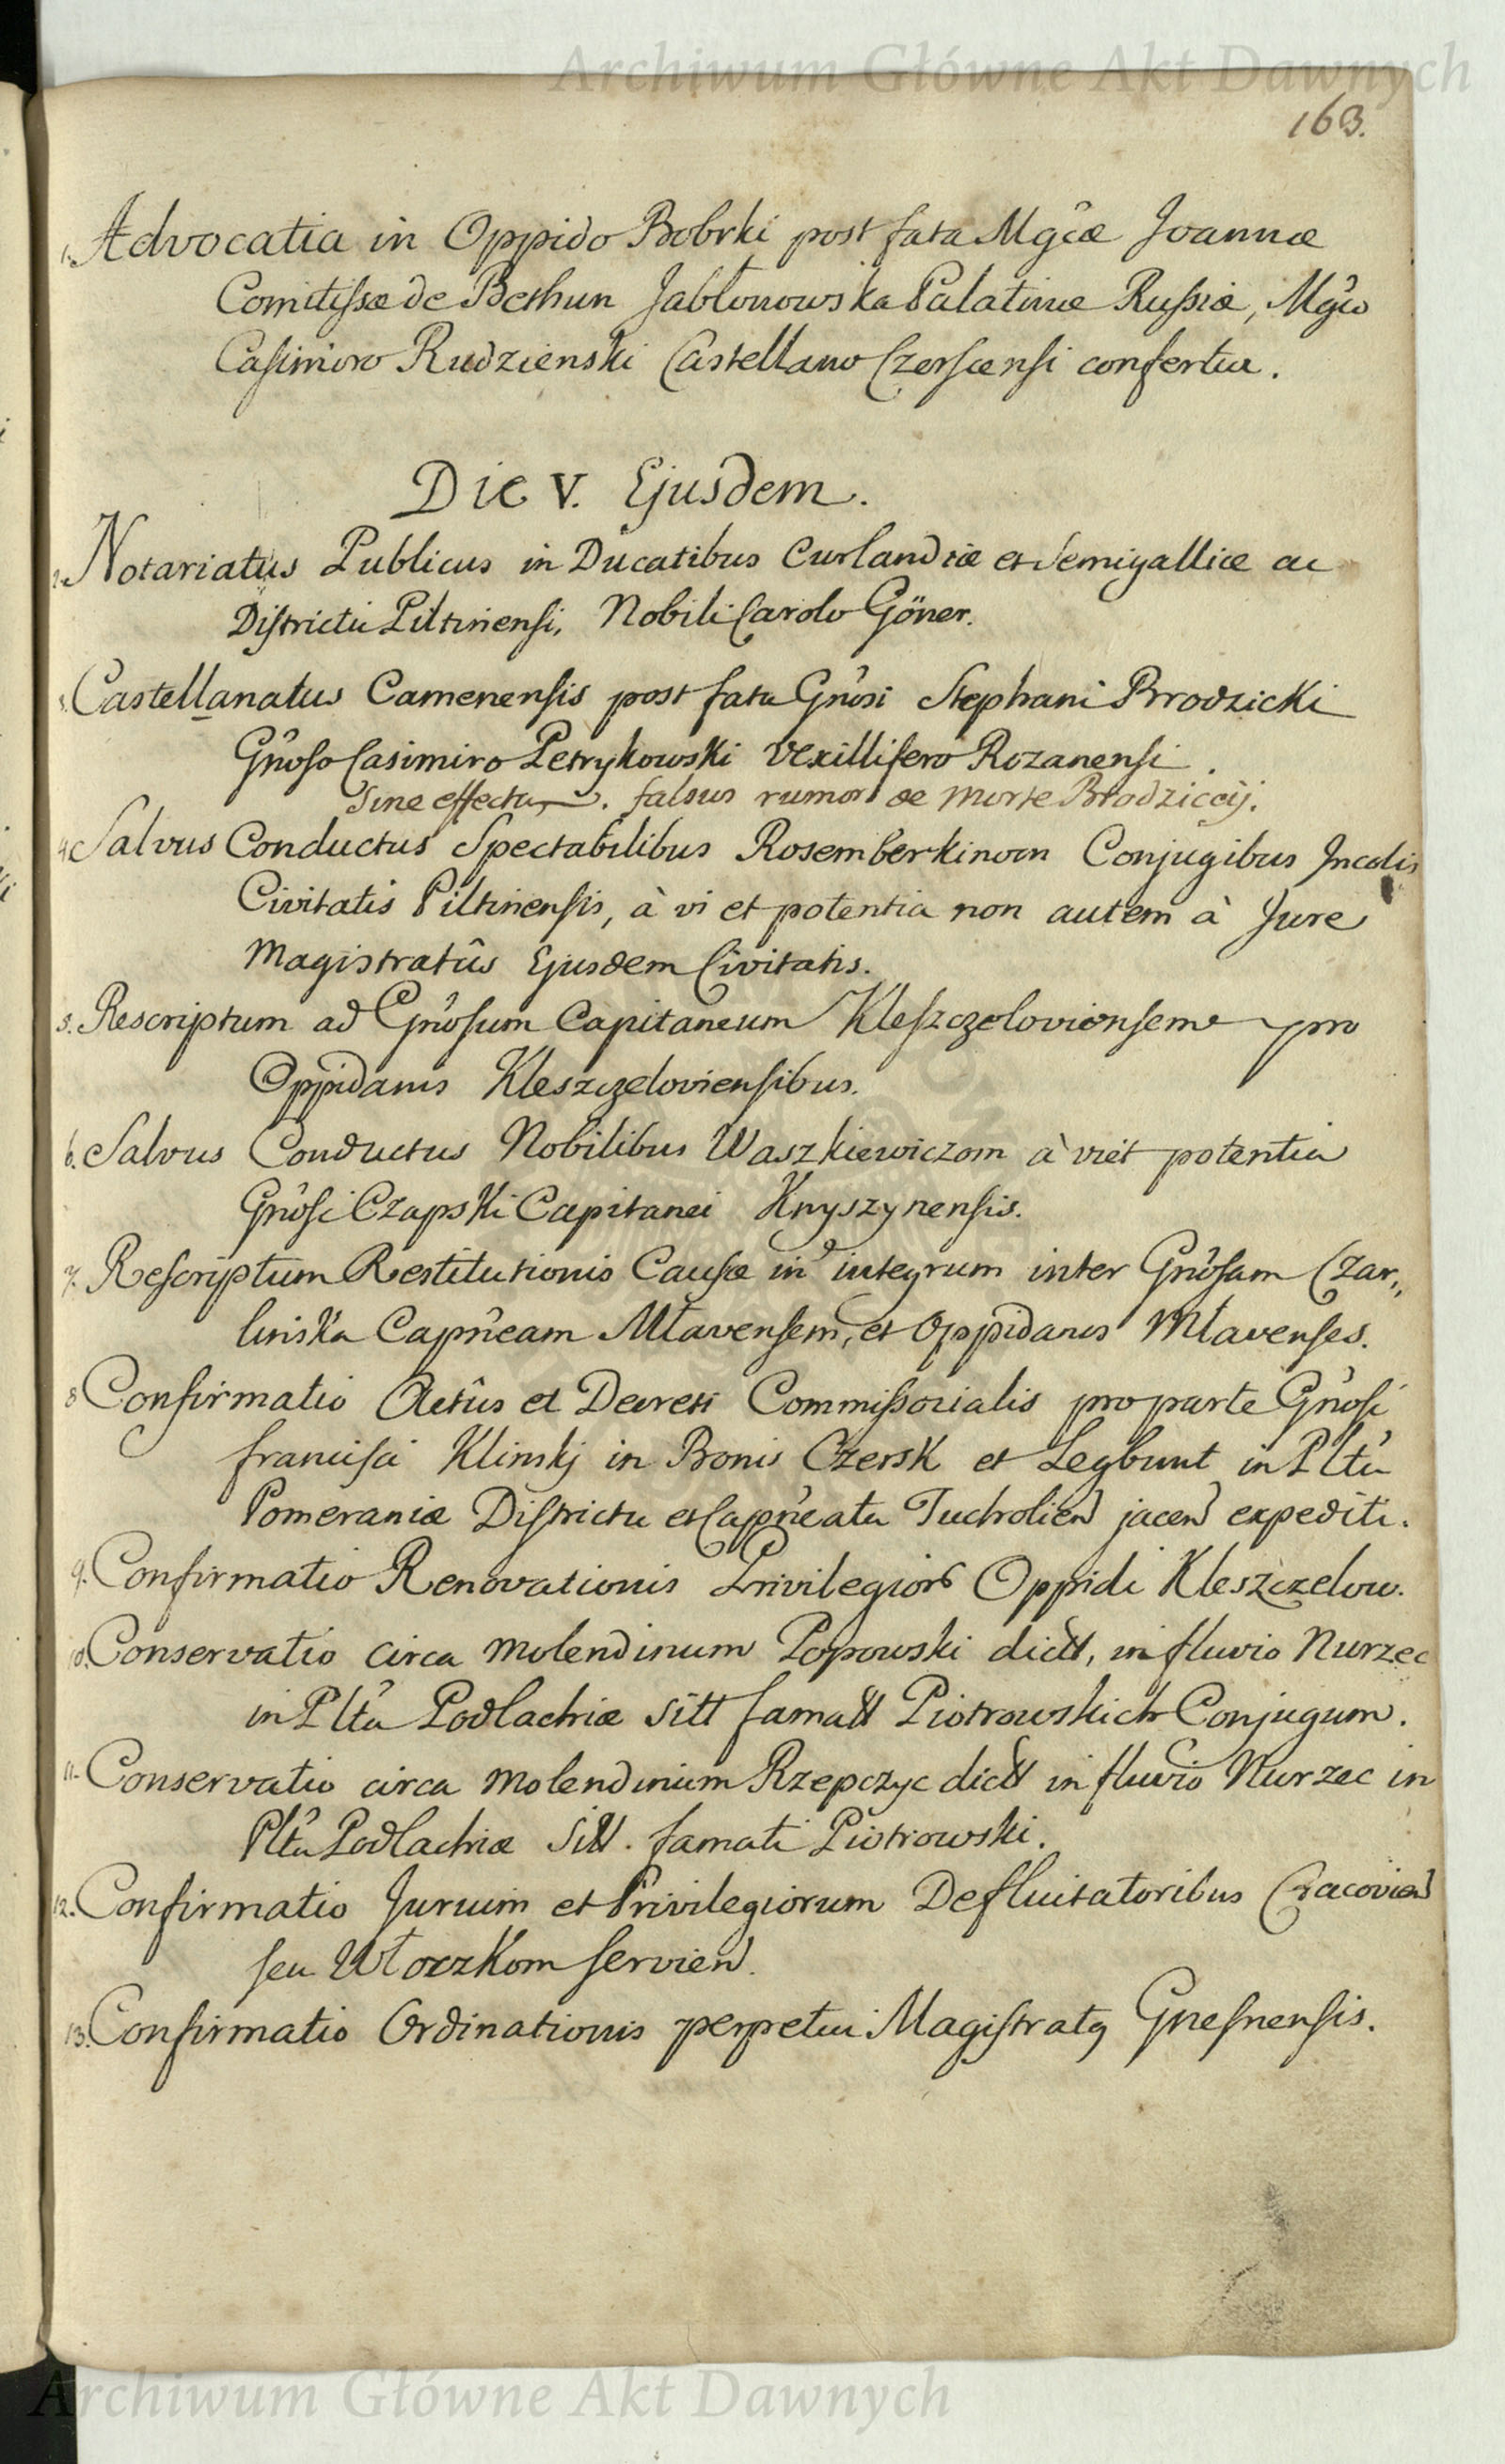 Archiwum Główne Akt Dawnych
163.
1. Advocatia in Oppido Bobrki post fata Mgcæ Joannæ
Comitissæ de Bethun Jabłonowska Palatinæ Russiæ, Mgco
Casimiro Rudzienski Castellano Czerscensi confertur.
Die V. Ejusdem.
2. Notariatus Publicus in Ducatibus Curlandiæ et Semigalliæ ac
Districtu Piltinensi, Nobili Carolo Göner.
3. Castellanatus Camenensis post fata Gnosi Stephani Brodzicki
Gnoso Casimiro Petrykowski Vexillifero Rozanensi.
Sine effectu. falsus rumor de morte Brodziccij.
4. Salvus Conductus Spectabilibus Rosemberkinom Conjugibus Incolis
Civitatis Piltinensis, à vi et potentia non autem à Jure
Magistratûs Ejusdem Civitatis.
5. Rescriptum ad Gnosum Capitaneum Kleszczeloviensem pro
Oppidanis Kleszczeloviensibus.
6. Salvus Conductus Nobilibus Waszkiewiczom à vi et potentia
Gnosi Czapski Capitanei Knyszynensis.
7. Rescriptum Restitutionis Causæ in integrum inter Gnosam Czar,,
linska Capneam Mławensem, et Oppidanos Mławenses.
8 Confirmatio Actûs et Decreti Commissorialis pro parte Gnosi
Francisci Klinskj in Bonis Czersk et Legbunt in Pltu
Pomeraniæ Districtu et Capneatu Tucholien jacen expediti.
9. Confirmatio Renovationis Privilegior Oppidi Kleszczelow.
10. Conservatio circa molendinum Popowski dictt, in fluvio Nurzec
in Pltu Podlachiæ sitt famatt Piotrowskich Conjugum.
11. Conservatio circa molendinum Rzepczyc dictt in fluvio Nurzec in
Pltu Podlachiæ sitt. famati Piotrowski.
12. Confirmatio Jurium et Privilegiorum Defluitatoribus Cracovien
seu Włoczkom servien.
13. Confirmatio Ordinationis perpetui Magistratq Gnesnensis.
Archiwum Główne Akt Dawnych